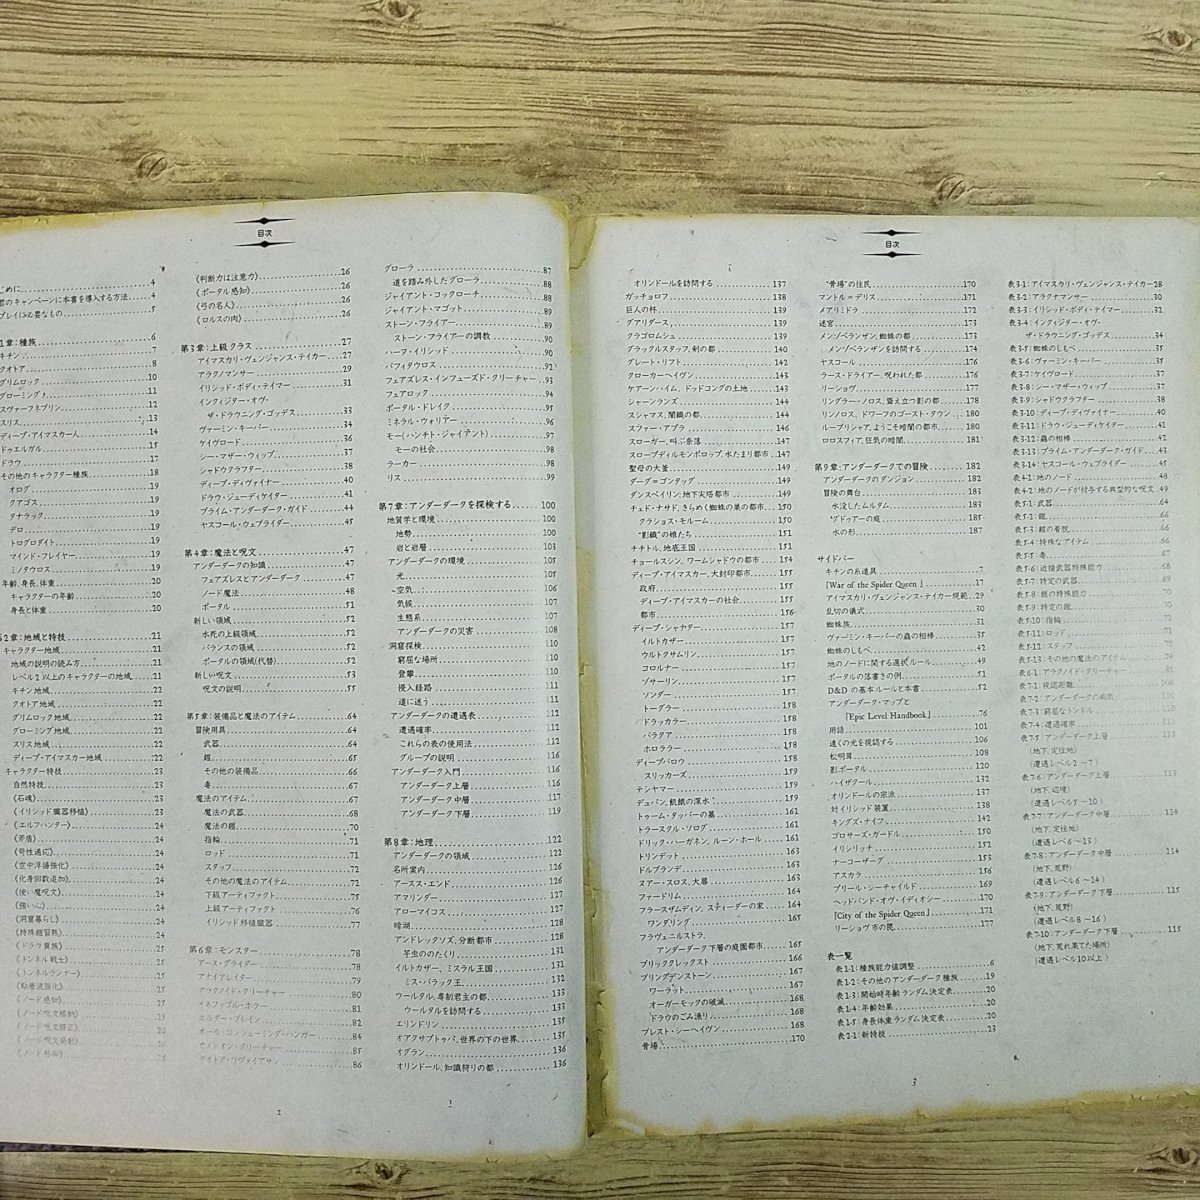 目次
じめに 4
君のキャンペーンに本書を導入する方法 4
プレイに必要なもの 5
1章:種族 6
キチン 7
クオトア 8
グリムロック 10
グローミング 11
スヴァーフネブリン 12
スリス 13
ディープ・アイマスカー人 14
ドゥエルガル 15
ドラウ 17
その他のキャラクター種族 18
オログ 19
クアゴス 19
タナラック 19
デロ 19
トログロダイト 19
マインド・フレイヤー 19
ミノタウロス 19
年齢、身長、体重 20
キャラクターの年齢 20
身長と体重 20
2章:地域と特技 21
キャラクター地域 21
地域の説明の読み方 21
レベル2以上のキャラクターの地域 21
キチン地域 22
クオトア地域 22
グリムロック地域 22
グローミング地域 22
スリス地域 22
ディープ・アイマスカー地域 22
キャラクター特技 23
自然特技 23
《石魂》 23
《イリシッド臓器移植》 23
《エルフハンター》 24
《斧盾》 24
《苛性適応》 24
《空中浮揚強化》 24
《化身回数追加》 24
《使い魔呪文》 24
《強い心》 24
《洞窟暮らし》 24
《特殊鎧習熟》 24
《ドラウ貴族》 25
《トンネル戦士》 25
《トンネルランナー》 25
《粘着液強化》 25
《ノード感知》 25
《ノード呪文格納》
《ノード呪文修正》
《ノード呪文発動》
《判断力は注意力》 26
《ポータル感知》 26
《弓の名人》 26
《ロルスの肉》 26
第3章:上級クラス 27
アイマスカリ・ヴェンジャンス・テイカー 27
アラクノマンサー 29
イリシッド・ボディ・テイマー 31
インクィジター・オヴ・
ザ・ドラウニング・ゴッデス 33
ヴァーミン・キーパー 34
ケイヴロード 36
シー・マザー・ウィップ 37
シャドウクラフター 38
ディープ・ディヴァイナー 40
ドラウ・ジューディケイター 41
プライム・アンダーダーク・ガイド 44
ヤスコール・ウェブライダー 45
第4章:魔法と呪文 47
アンダーダークの知識 47
フェアズレスとアンダーダーク 47
ノード魔法 48
ポータル 51
新しい領域 52
水死の上級領域 52
バランスの領域 52
ポータルの領域(代替) 52
新しい呪文 53
呪文の説明 55
第5章:装備品と魔法のアイテム 64
冒険用具 64
武器 64
鎧 65
その他の装備品 66
毒 67
魔法のアイテム 67
魔法の武器 68
魔法の鎧 70
指輪 71
ロッド 71
スタッフ 72
その他の魔法のアイテム 72
下級アーティファクト 75
上級アーティファクト 76
イリシッド移植臓器 77
第6章:モンスター 78
アース・グライダー 78
アナイアレイター 79
アラクノイド・クリーチャー 80
イネファブル・ホラー 81
エルダー・ブレイン 82
オール・コンシューミング・ハンガー 84
カメレオン・クリーチャー 85
クオトア・リヴァイアサン 86
グローラ 87
道を踏み外したグローラ 88
ジャイアント・コックローチ 88
ジャイアント・マゴット 89
ストーン・フライアー 89
ストーン・フライアーの調教 90
ハーフ・イリシッド 90
パフィタウロス 92
フェアズレス・インフューズド・クリーチャー 93
フェアロック 94
ポータル・ドレイク 95
ミネラル・ウォリアー 96
モー(ハンチト・ジャイアント) 97
モーの社会 98
ラーカー 98
リス 99
第7章:アンダーダークを探検する 100
地質学と環境 100
地勢 100
岩と岩層 103
アンダーダークの環境 105
光 105
空気 106
気候 107
生態系 107
アンダーダークの災害 108
洞窟探検 110
窮屈な場所 110
登攀 110
侵入経路 111
道に迷う 111
アンダーダークの遭遇表 112
遭遇確率 112
これらの表の使用法 112
グループの説明 116
アンダーダーク入門 116
アンダーダーク上層 116
アンダーダーク中層 117
アンダーダーク下層 119
第8章:地理 122
アンダーダークの領域 122
名所案内 126
アースス・エンド 126
アマリンダー 127
アローマイコス 127
暗湖 128
アンドレックソズ、分断都市 128
芋虫ののたくり 131
イルトカザー、ミスラル王国 131
ミス・バラック王 132
ウールタル、専制君主の都 133
ウールタルを訪問する 133
エリンドリン 135
オアクサプトゥパ、世界の下の世界 135
オグラン 136
オリンドール、知識狩りの都 136
2
目次
オリンドールを訪問する 137
ガッチョロフ 138
巨人の杯 139
グアリダース 139
クラゴロムシュ 139
グラックルスタッフ、剣の都 140
グレート・リフト 142
クローカーヘイヴン 143
ケアーン・ハイム、ドッドコングの土地 143
シャーンランズ 144
スシャマス、闇織の都 144
スファー・アプラ 146
スローガー、叫ぶ奈落 147
スロープディルモンロップ、水たまり都市 147
聖母の大釜 149
ダーグ=ゴンタッグ 149
ダンスペイリン、地下尖塔都市 149
チェド・ナサド、きらめく蜘蛛の巣の都市 150
クラショス・モルーム 150
“影織”の娘たち 151
チチトル、地底王国 151
チョールスシン、ワームシャドウの都市 154
ディープ・アイマスカー、大封印都市 155
政府 155
ディープ・アイマスカーの社会 155
都市 156
ディープ・シャナター 157
イルトカザー 157
ウルトクサムリン 157
コロルナー 157
ブサーリン 157
ソンダー 157
トーグラー 158
ドラッカラー 158
バラグア 158
ホロララー 158
ディープ・バロウ 158
スリッカーズ 159
テシヤマー 159
デュパン、飢餓の深水 159
トゥーム・タッパーの墓 161
トラースクル・ソログ 161
ドリック・ハーガネン、ルーン・ホール 161
トリンデット 163
ドルブランデ 163
ヌアー・スロス、大扉 163
ファードリム 164
フラースザムディン、スティーダーの家 164
ワンダリング 165
フラヴェニルストラ、
アンダーダーク下層の庭園都市 165
ブリックレックスト 166
ブリングデンストーン 167
ワーラット 167
オーガーモックの破滅 168
ドラウのごみ漁り 168
ブレスト・シーヘイヴン 168
骨場 170
“骨場”の住民 170
マントル=デリス 171
メアリミドラ 172
迷宮 173
メンゾベランザン、蜘蛛の都 173
メンゾベランザンを訪問する 174
ヤスコール 176
ラース・ドライアー、呪われた都 176
リーショヴ 177
リングラー・ノロス、聳え立つ影の都 178
リンノロス、ドワーフのゴースト・タウン 180
ルーブリシャア、ようこそ暗闇の都市 180
ロロスフィア、狂気の暗闇 181
第9章:アンダーダークでの冒険 182
アンダーダークのダンジョン 182
冒険の舞台 183
水没したムルタム 183
“グドゥアーの庭 185
水の形 187
サイドバー
キチンの糸道具 7
『War of the Spider Queen』 17
アイマスカリ・ヴェンジャンス・テイカー規範 29
乱切の儀式 30
蜘蛛族 31
ヴァーミン・キーパーの蟲の相棒 35
蜘蛛のしもべ 42
地のノードに関する選択ルール 49
ポータルの落書きの例 51
D&Dの基本ルールと本書 52
アンダーダーク・マップと
『Epic Level Handbook』 76
用語 101
遠くの光を視認する 106
松明茸 108
影ポータル 120
ハイザクール 132
オリンドールの宗派 137
対イリシッド装置 138
キングズ・ナイフ 142
ゴロサーズ・ガードル 150
イリシリッチ 152
ナーコーザーグ 153
アスカラ 156
ブリール・シーチャイルド 169
ヘッドバンド・オヴ・イディオシー 170
『City of the Spider Queen』 171
リーショヴ市の罠 177
表一覧
表1-1:種族能力値調整 6
表1-2:その他のアンダーダーク種族 19
表1-3:開始時年齢ランダム決定表 20
表1-4:年齢効果 20
表1-5:身長体重ランダム決定表 20
表2-1:新特技 23
表3-1:アイマスカリ・ヴェンジャンス・テイカー 28
表3-2:アラクナマンサー 30
表3-3:イリシッド・ボディ・テイマー 32
表3-4:インクィジター・オヴ・
ザ・ドラウニング・ゴッデス 34
表3-5:蜘蛛のしもべ 34
表3-6:ヴァーミン・キーパー 35
表3-7:ケイヴロード 37
表3-8:シー・マザー・ウィップ 37
表3-9:シャドウクラフター 38
表3-10:ディープ・ディヴァイナー 40
表3-11:ドラウ・ジューディケイター 41
表3-12:蟲の相棒 42
表3-13:プライム・アンダーダーク・ガイド 43
表3-14:ヤスコール・ウェブライダー 45
表4-1:地のノード 48
表4-2:地のノードが付与する典型的な呪文 49
表5-1:武器 64
表5-2:鎧 66
表5-3:鎧の着脱 66
表5-4:特殊なアイテム 66
表5-5:毒 67
表5-6:近接武器特殊能力 68
表5-7:特定の武器 69
表5-8:鎧の特殊能力 70
表5-9:特定の鎧 70
表5-10:指輪 71
表5-11:ロッド 71
表5-12:スタッフ 72
表5-13:その他の魔法のアイテム
表6-1:アラクノイド・クリーチャー
表7-1:視認距離
表7-2:アンダーダークの病気
表7-3:窮屈なトンネル 110
表7-4:遭遇確率
表7-5:アンダーダーク上層 113
(地下、定住地)
(遭遇レベル2～7)
表7-6:アンダーダーク上層 113
(地下、辺境)
(遭遇レベル5～10)
表7-7:アンダーダーク中層 114
(地下、定住地)
(遭遇レベル6～13)
表7-8:アンダーダーク中層 114
(地下、荒野)
(遭遇レベル6～14)
表7-9:アンダーダーク下層 115
(地下、荒野)
(遭遇レベル8～16)
表7-10:アンダーダーク下層 115
(地下、荒れ果てた場所)
(遭遇レベル10以上)
3